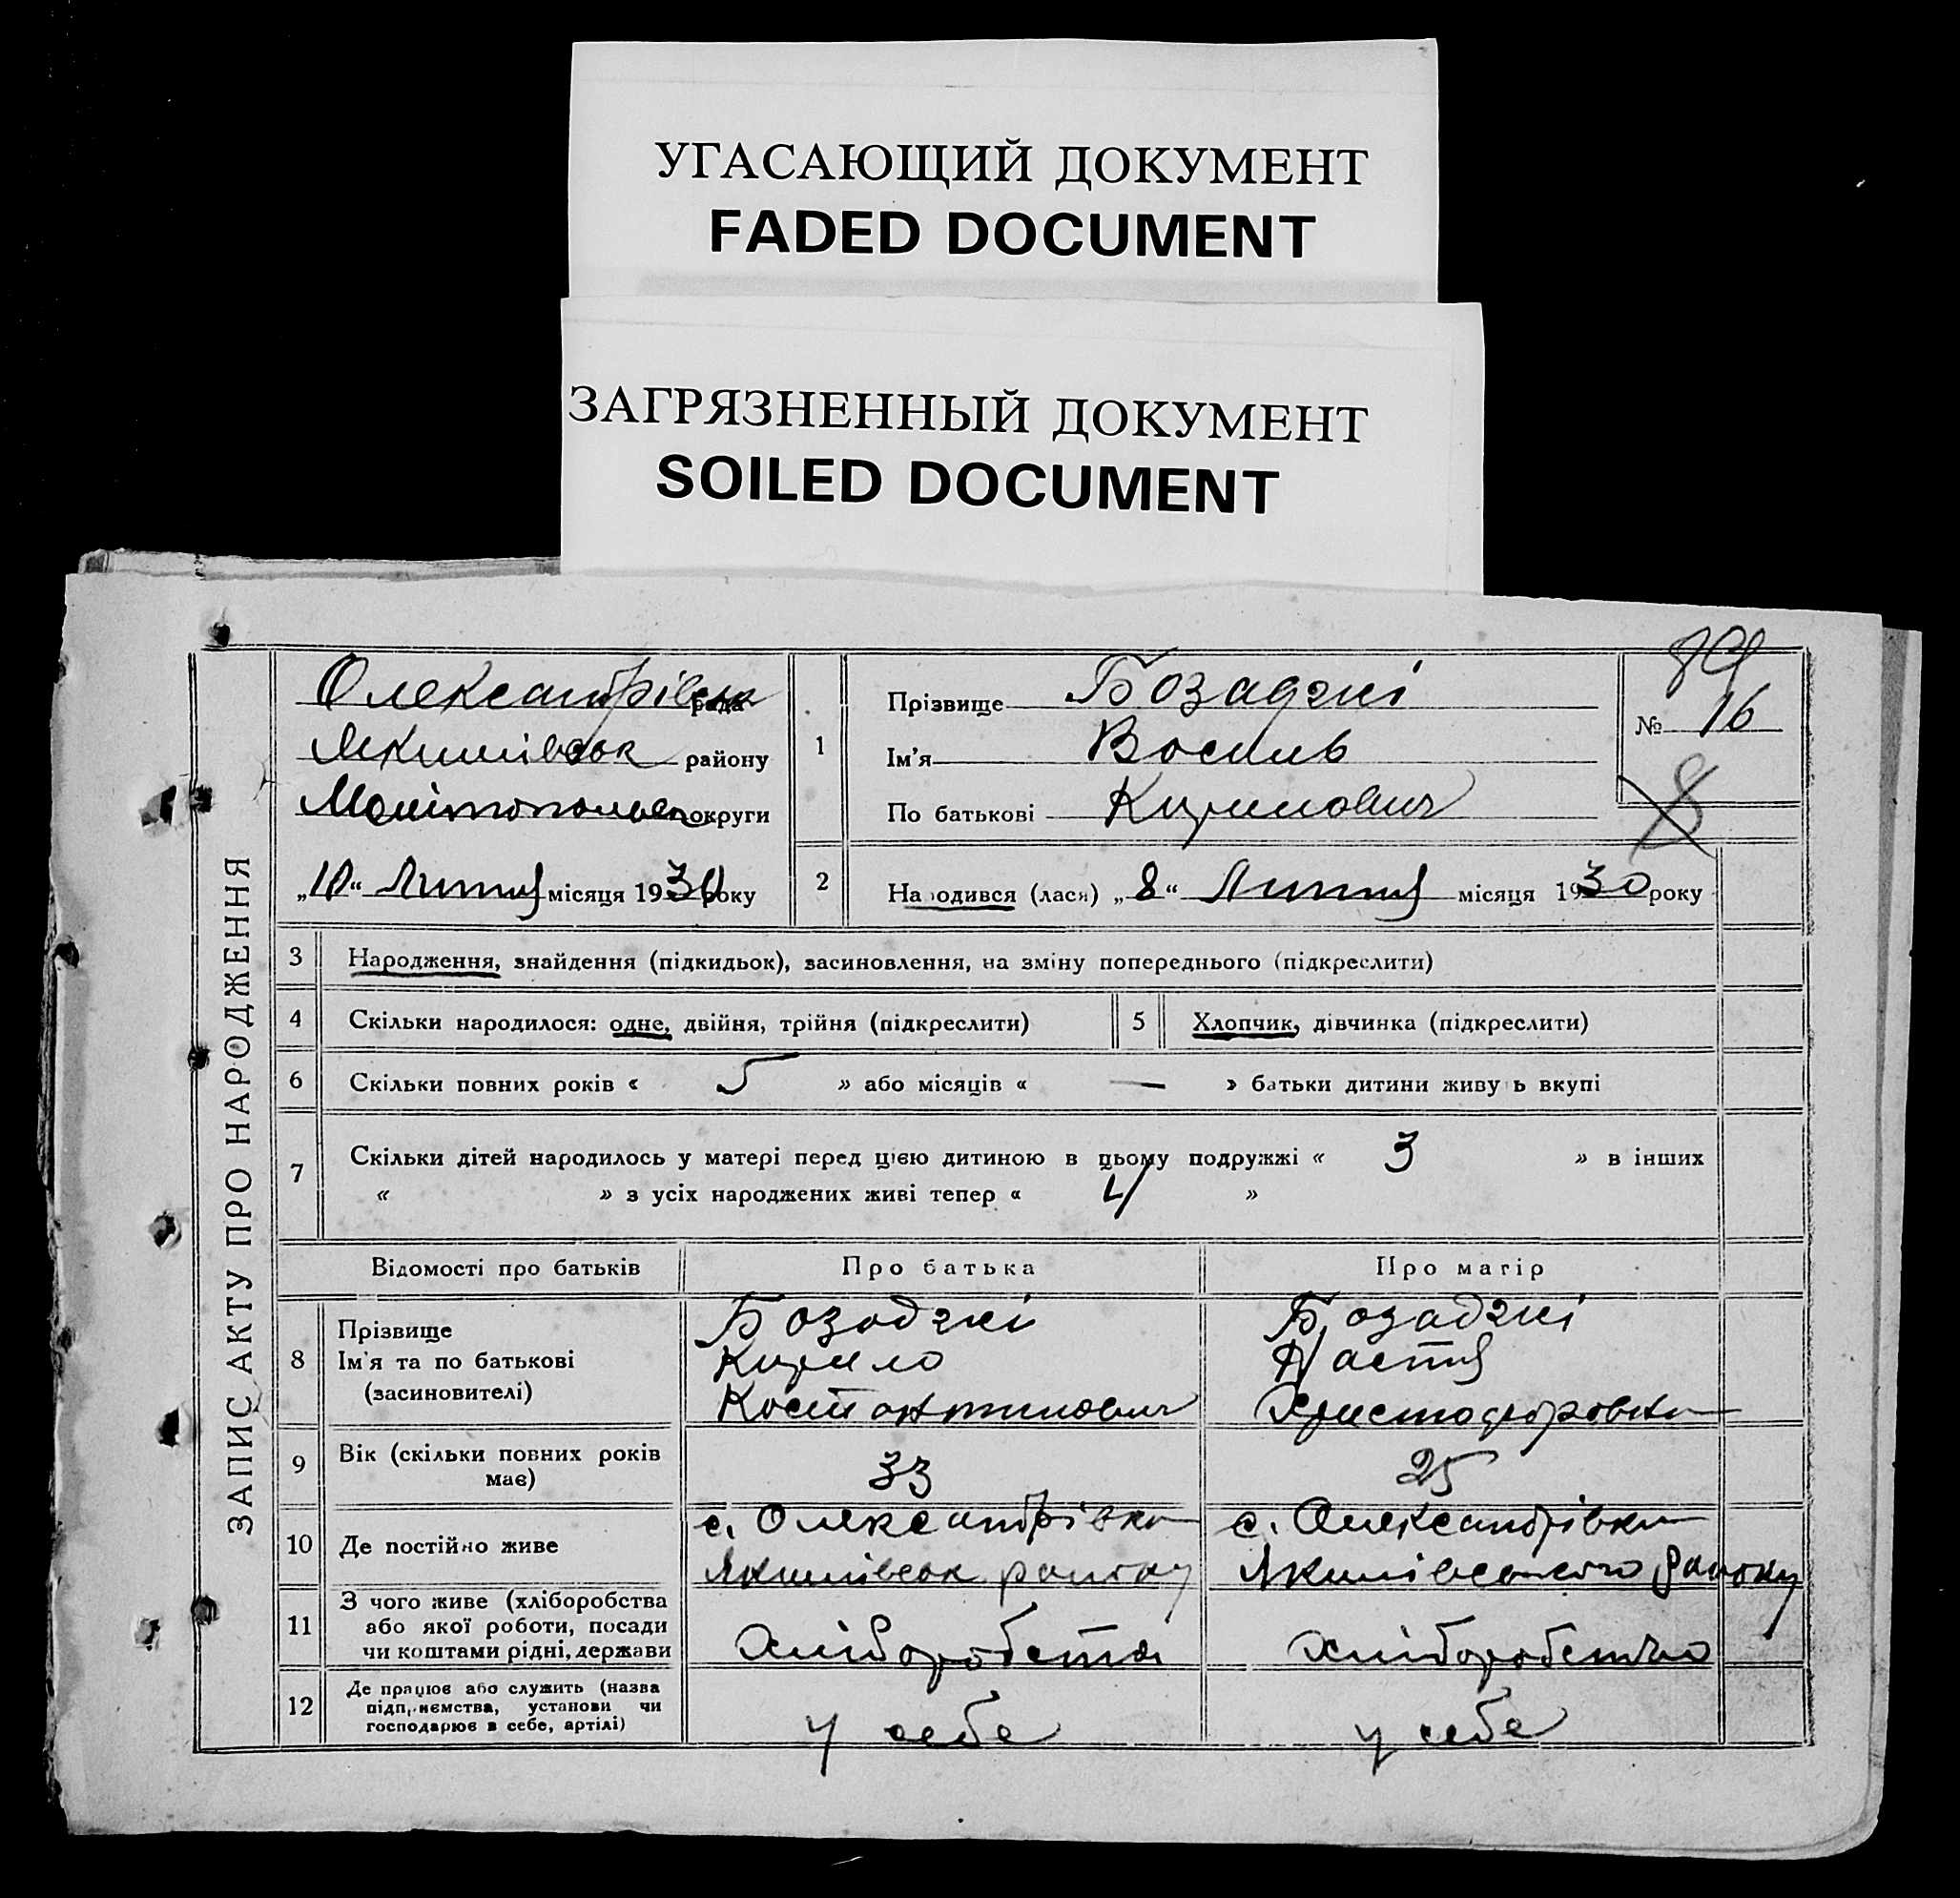 УГАСАЮЩИЙ ДОКУМЕНТ
FADED DOCUMENT
ЗАГРЯЗНЕННЫЙ ДОКУМЕНТ
SOILED DOCUMENT
ЗАПИС АКТУ ПРО НАРОДЖЕННЯ
Олександрівська рада
Якимівськ району
Мелітопольськ округи
„10“ Лютня місяця 1930 року
1
Прізвище Бозаджі
Ім'я Василь
По батькові Кирилович
89
№ 16
8
2
Народився (лася) „8“ Лютня місяця 1930 року
3 Народження, знайдення (підкидьок), засиновлення, на зміну попереднього (підкреслити)
4 Скільки народилося: одне, двійня, трійня (підкреслити)
5 Хлопчик, дівчинка (підкреслити)
6 Скільки повних років « 5 » або місяців « — » батьки дитини живуть вкупі
7 Скільки дітей народилось у матері перед цією дитиною в цьому подружжі « 3 » в інших
« » з усіх народжених живі тепер « 4 »
Відомості про батьків Про батька Про матір
8 Прізвище
Ім'я та по батькові
(засиновителі)
Бозаджі
Кирило
Костантинович
Бозаджі
Настя
Христофоровна
9 Вік (скільки повних років
має)
33
25
10 Де постійно живе
с. Олександрівка
Якимівськ району
с. Олександрівка
Якимівського району
11 З чого живе (хліборобства
або якої роботи, посади
чи коштами рідні, держави
Хліборобства
Хліборобство
12 Де працює або служить (назва
підприємства, установи чи
господарює в себе, артілі)
у себе
у себе